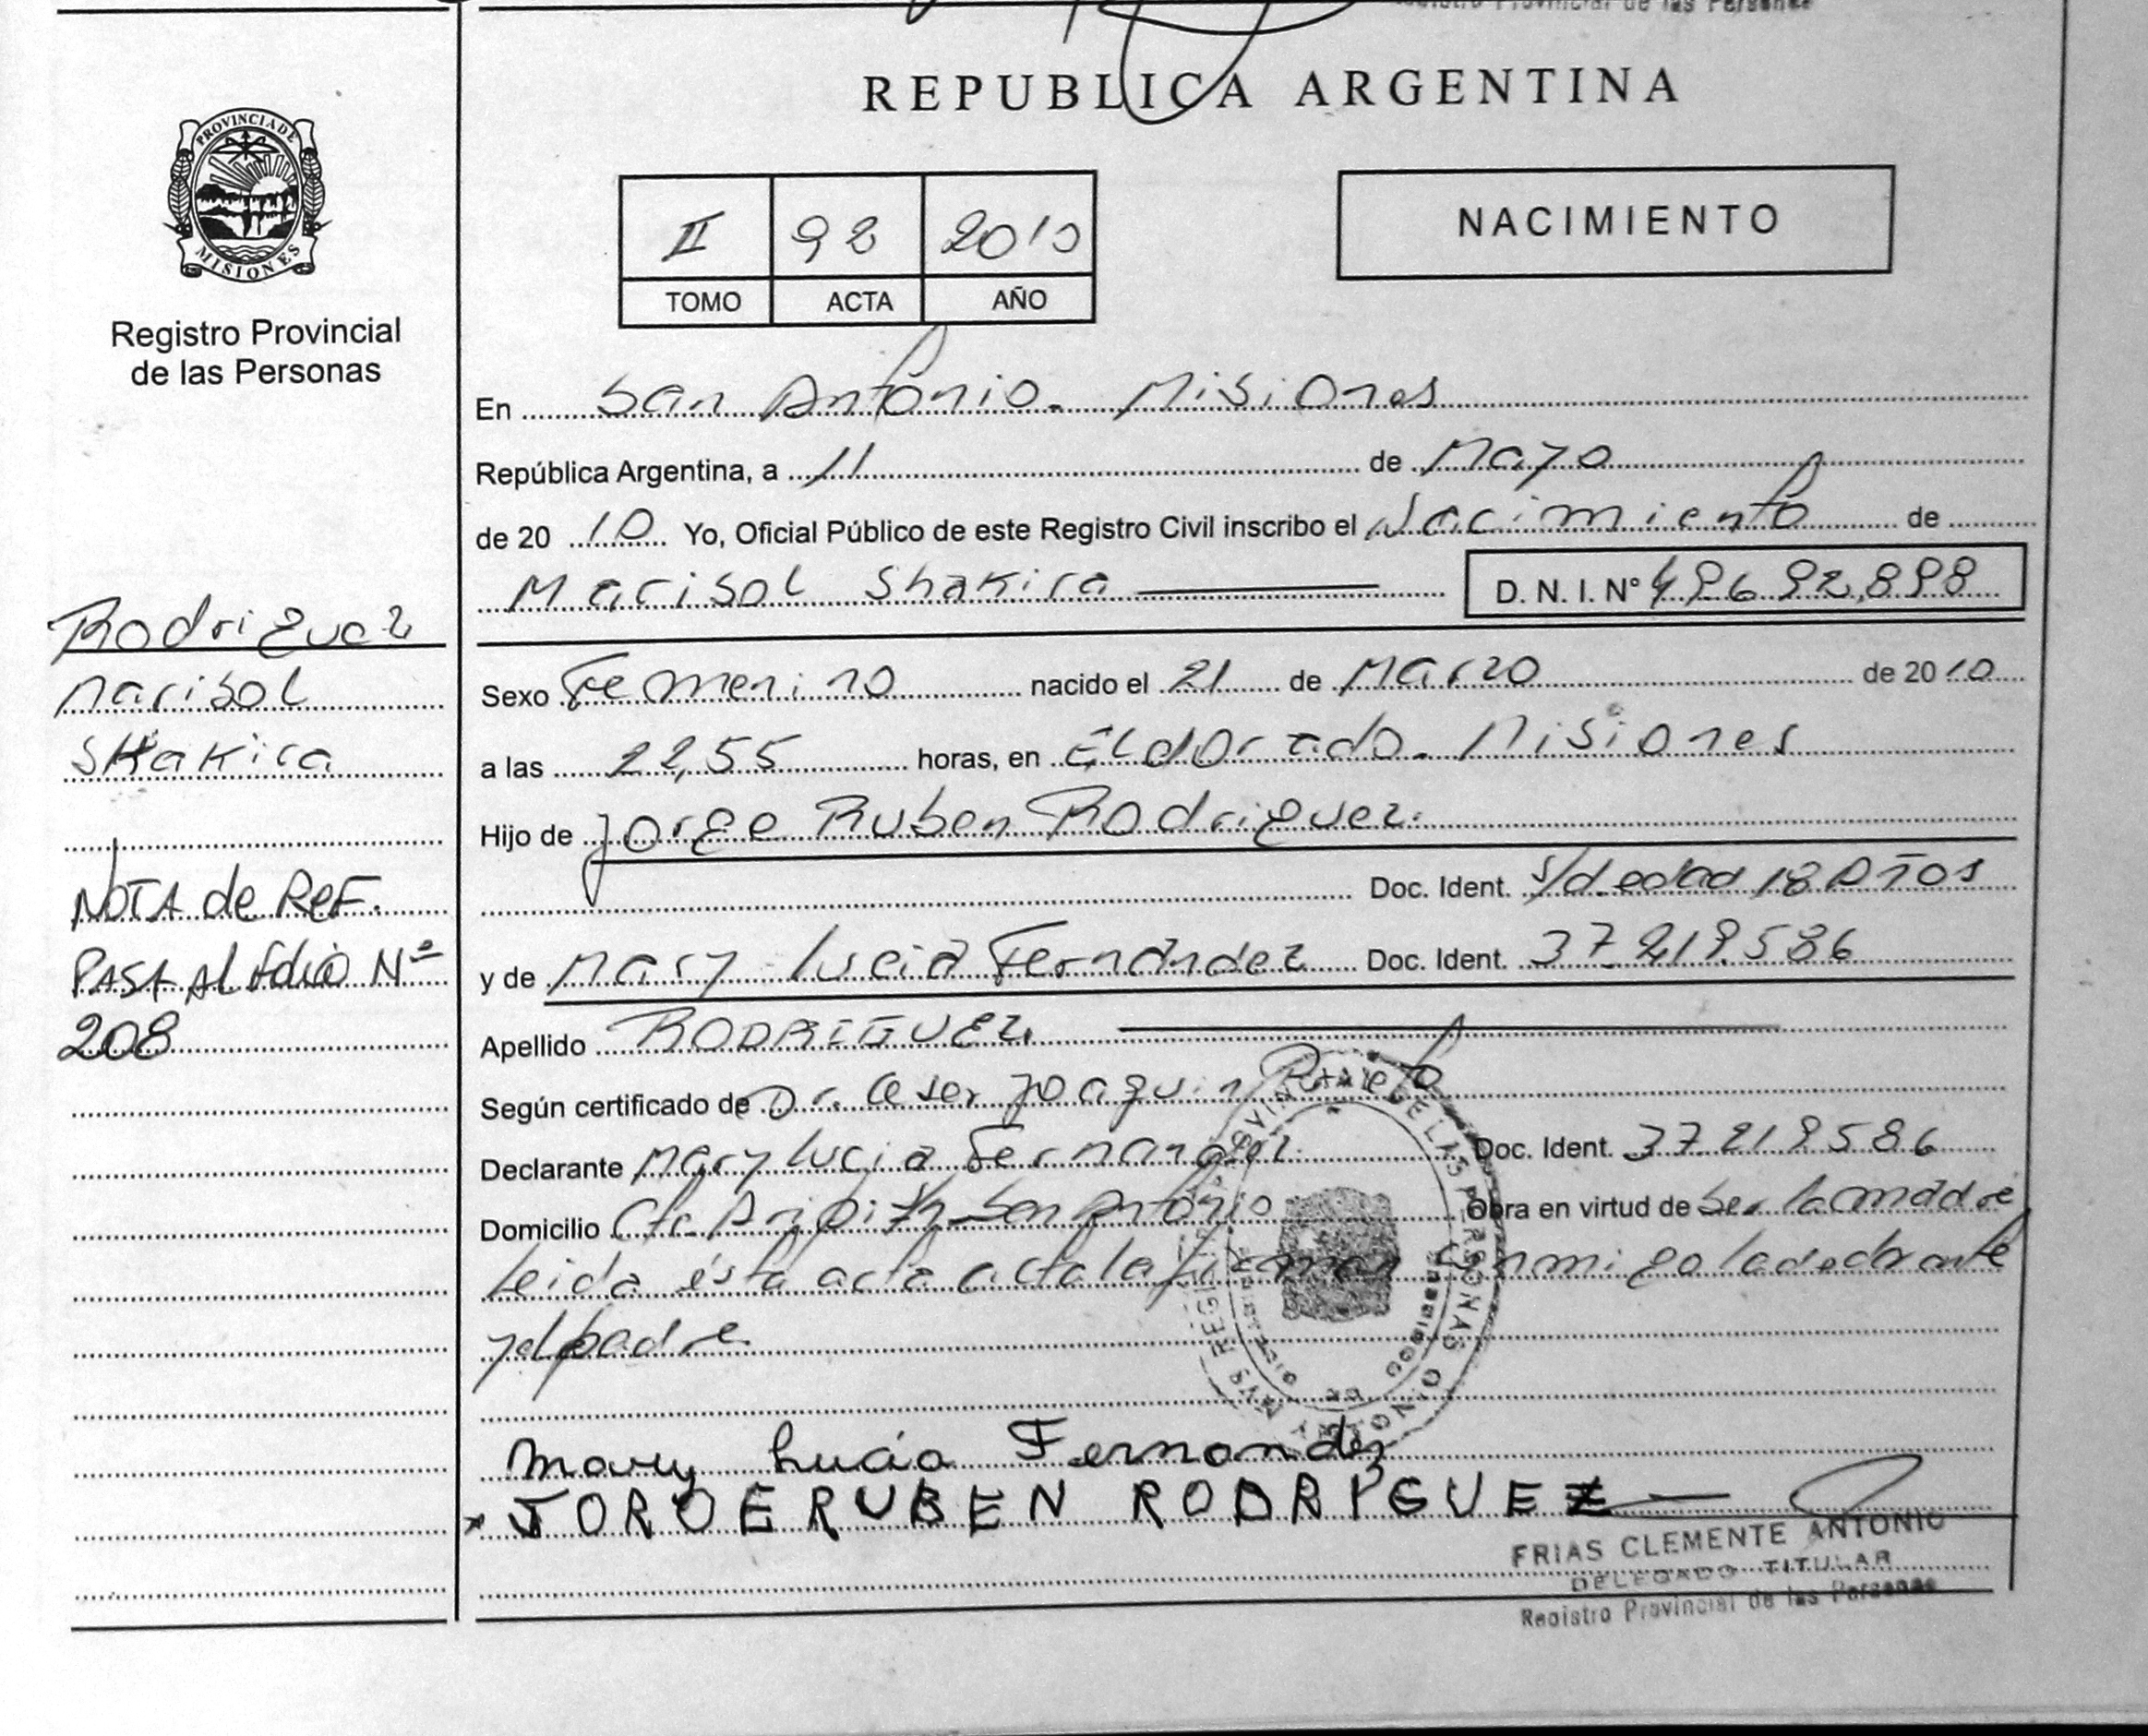 Registro Provincial de las Personas
REPUBLICA ARGENTINA
PROVINCIA DE
MISIONES
Registro Provincial
de las Personas
II 92 2010
TOMO ACTA AÑO
NACIMIENTO
En San Antonio. Misiones
República Argentina, a 11 de Mayo
de 20 10 Yo, Oficial Público de este Registro Civil inscribo el Nacimiento de
Marisol Shakira D. N. I. Nº
Rodriguez
Marisol
Shakira
NOTA de REF.
PASA Al folio Nº
208
Sexo Femenino nacido el 21 de Marzo de 20 10
a las 22,55 horas, en Eldorado. Misiones
Hijo de Jorge Ruben Rodriguez.
Doc. Ident. s/d. edad 18 Años
y de Mary Lucia Fernandez Doc. Ident. 37.219.586
Apellido RODRIGUEZ
Según certificado de Dr. Joaquin Prieto
Declarante Mary Lucia Fernandez. Doc. Ident. 37.219.586
Domicilio San Antonio Obra en virtud de Ser la madre
leida ésta acta la firman conmigo la declarante
y el padre
Mary Lucia Fernandez
x JORGE RUBEN RODRIGUEZ
FRIAS CLEMENTE ANTONIO
DELEGADO TITULAR
Registro Provincial de las Personas